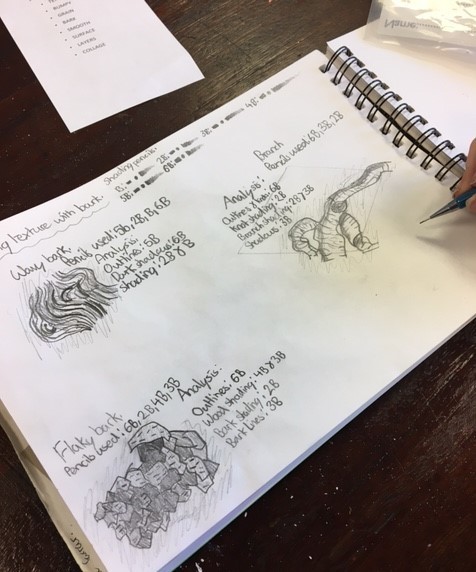 BUMPY
GRAIN
BARK
SMOOTH
SURFACE
LAYERS
COLLAGE
Name
Shading pencils:
B:
2B:
3B:
4B:
5B:
6B:
texture with bark.
Wavy bark
Pencils used: 5b, 2B, B, 6B
Analysis:
Outline: 5B
Dark shadows: 6B
Shading: 2B & B
Branch
Pencils used: 6B, 3B, 2B
Analysis:
Outlines
Knot shading: 2B
Branch shading: 2B & 3B
Shadows: 3B
Flaky bark.
Pencils used: 6B, 2B, 4B, 3B
Analysis:
Outlines: 6B
Wood shading: 4B & 3B
Bark shading: 2B
Bark lines: 3B